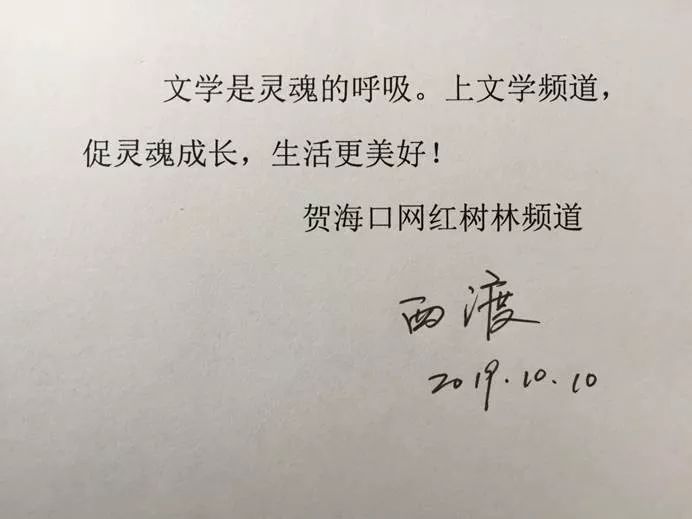 文学是灵魂的呼吸。上文学频道，
促灵魂成长，生活更美好！
贺海口网红树林频道
西渡
2019.10.10